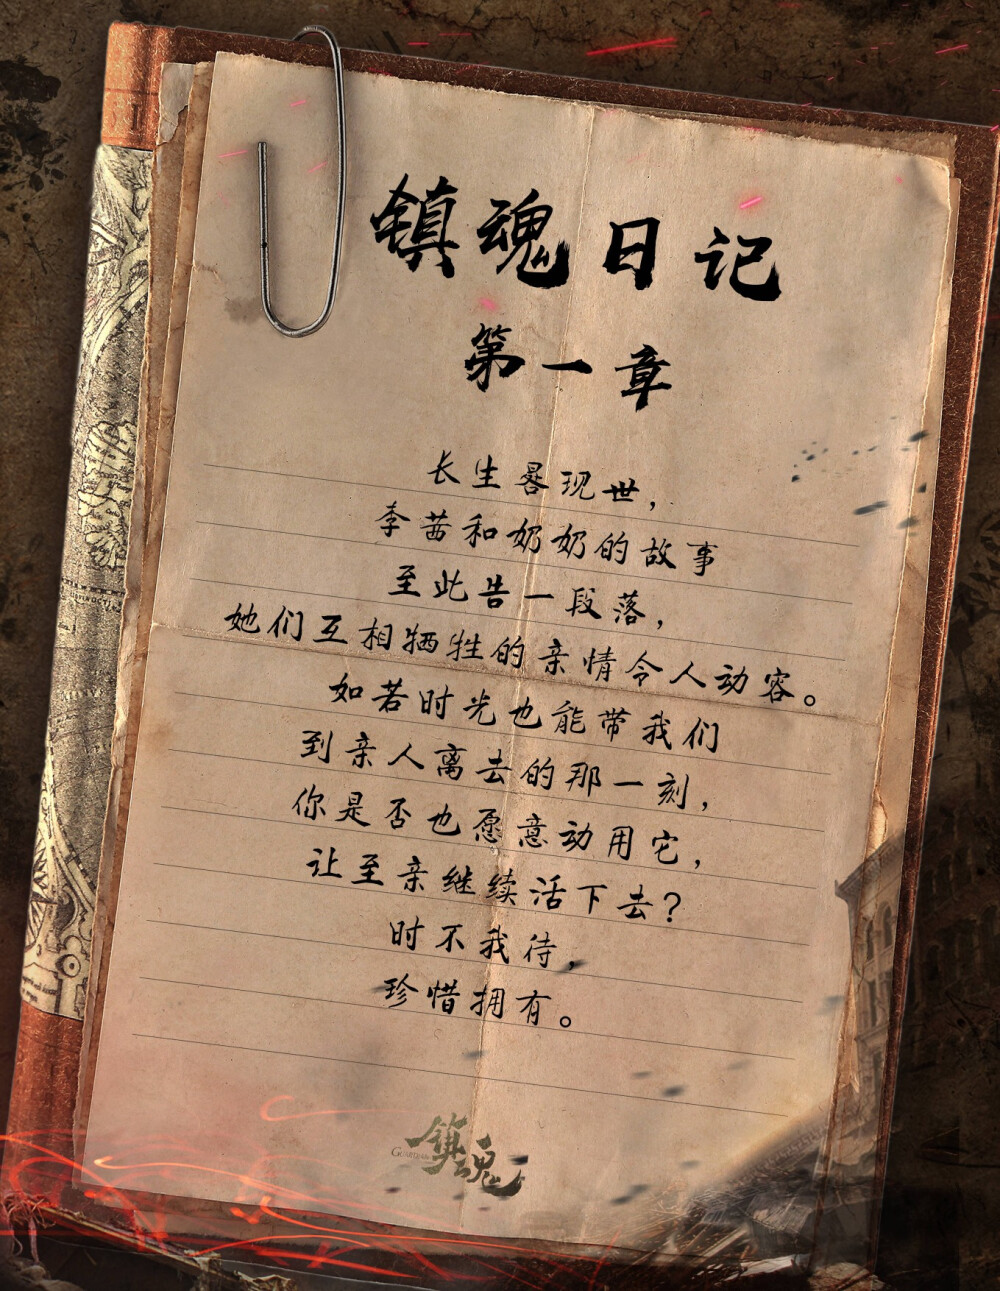 镇魂日记
第一章
长生晷现世，
李茜和奶奶的故事
至此告一段落，
她们互相牺牲的亲情令人动容。
如若时光也能带我们
到亲人离去的那一刻，
你是否也愿意动用它，
让至亲继续活下去？
时不我待，
珍惜拥有。
镇魂
GUARDIAN